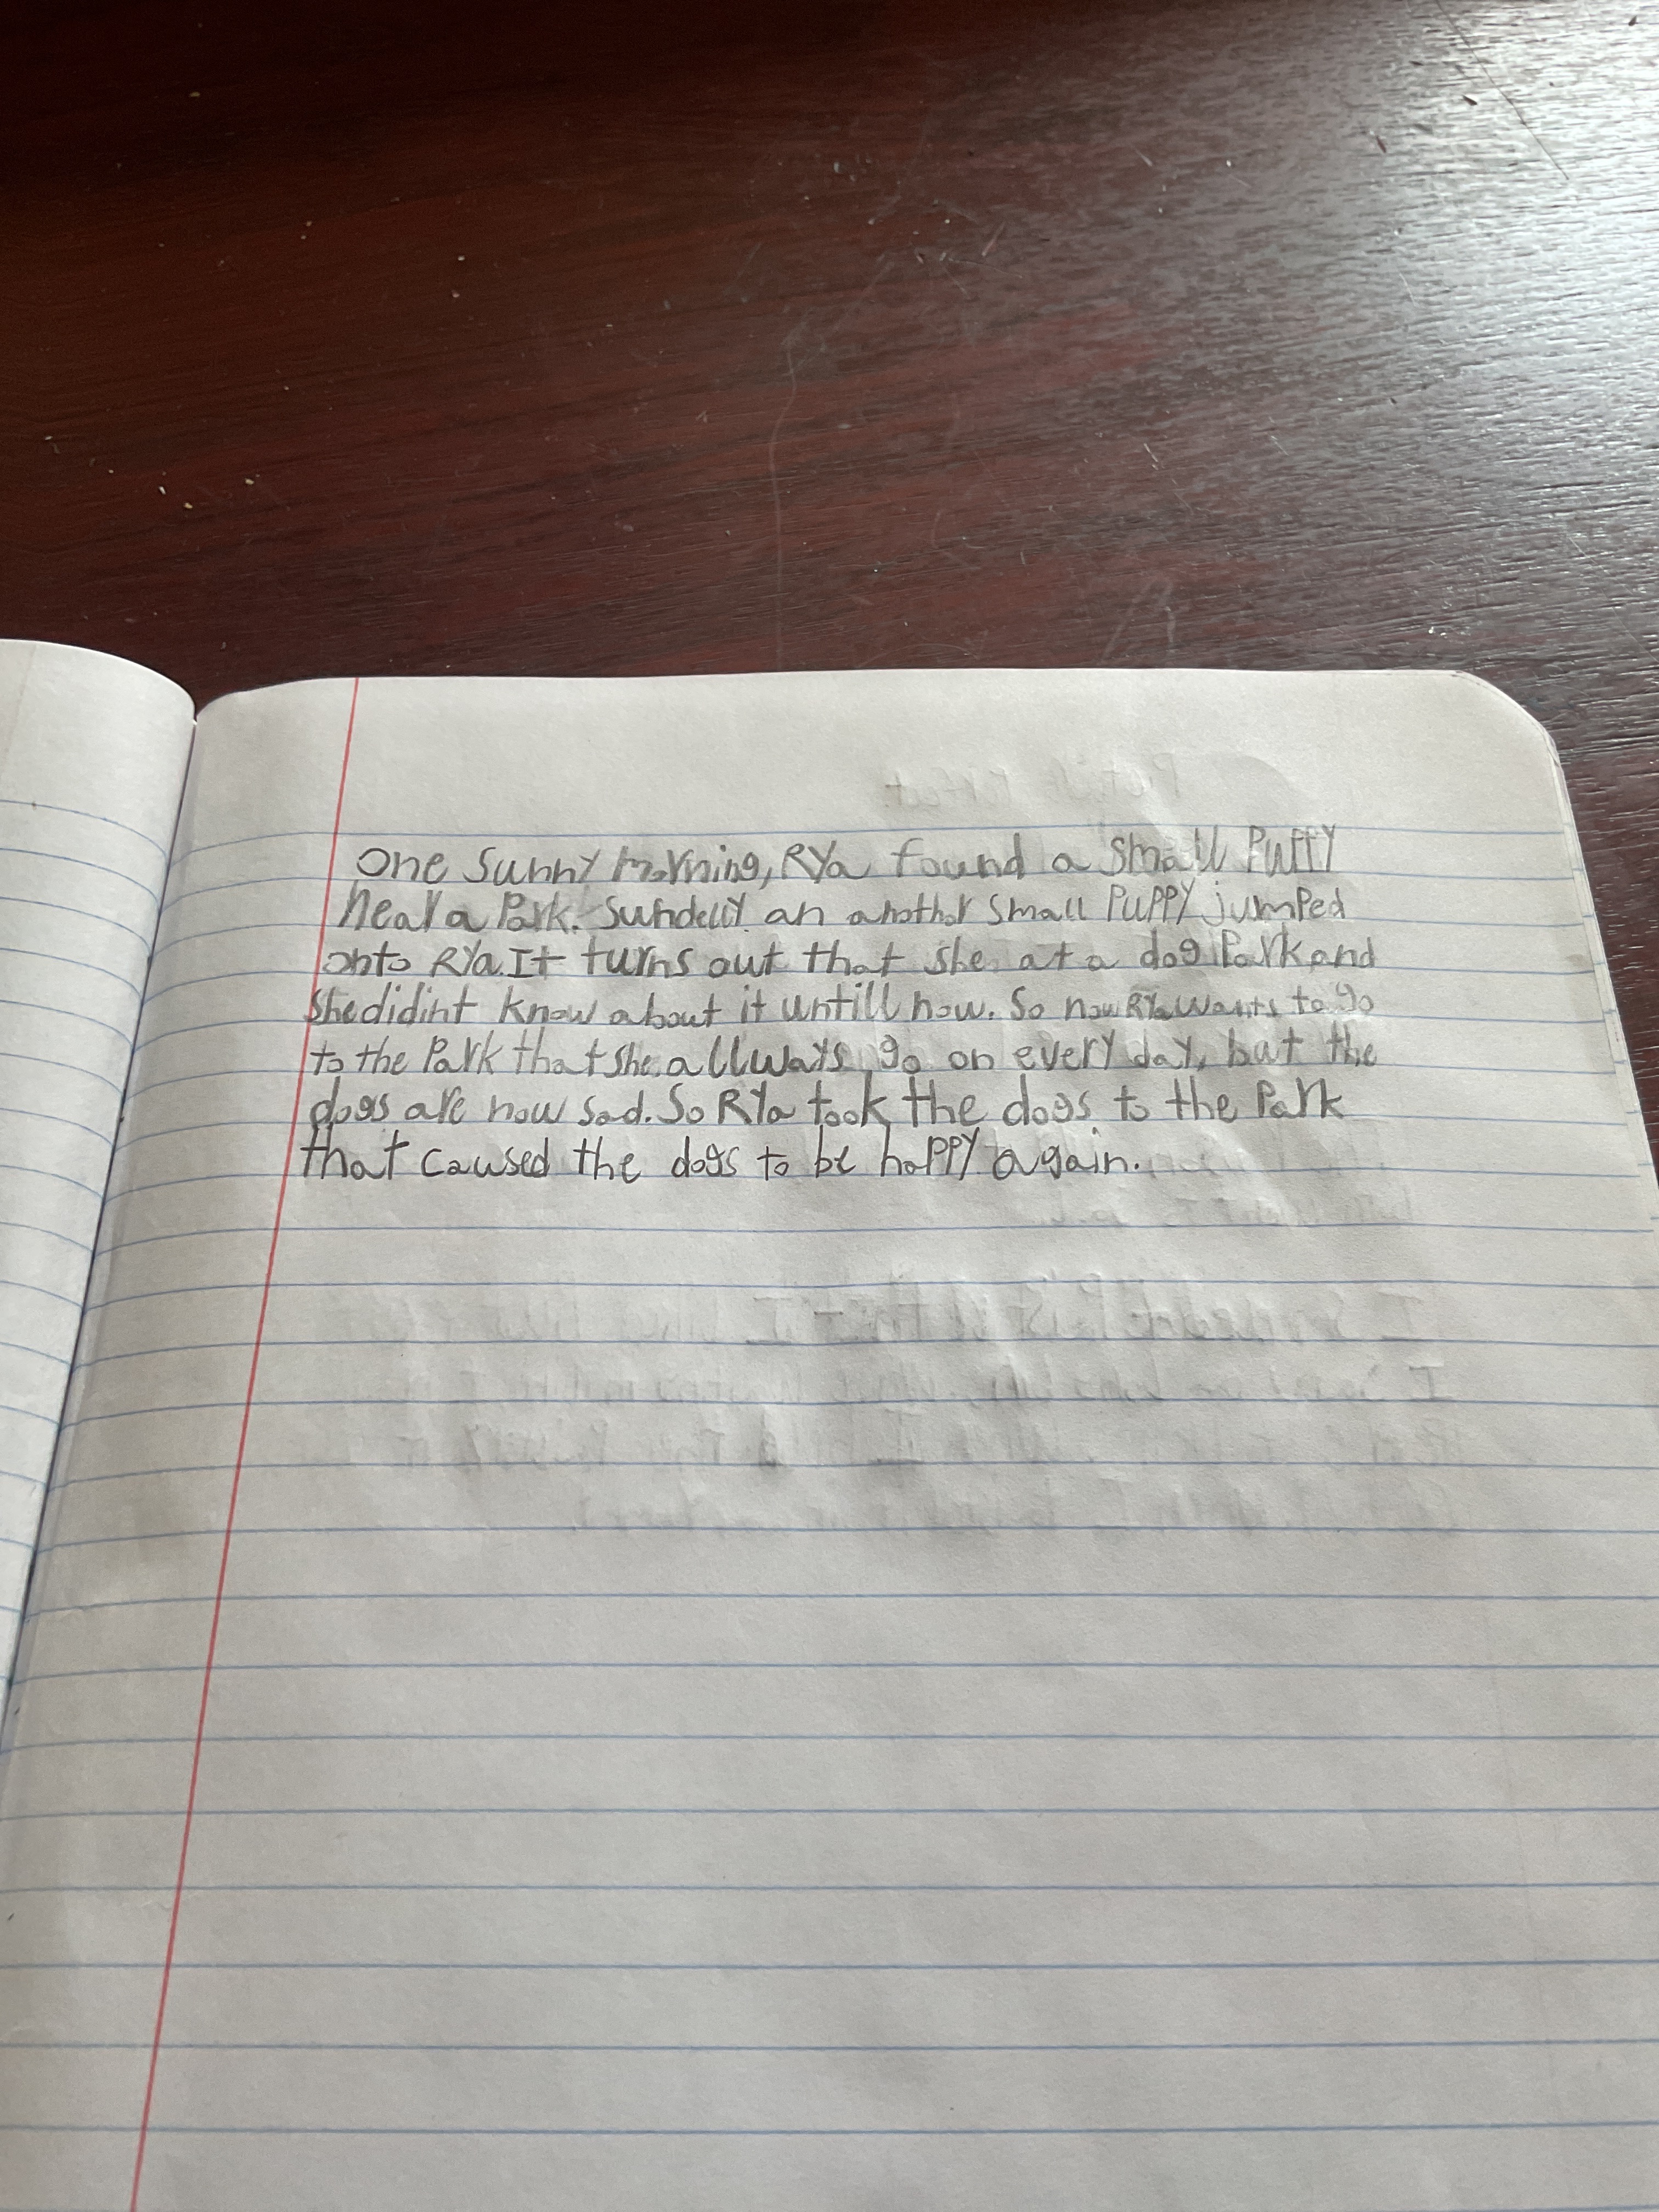 One Sunny morning, RYa found a Small PuPPY
Near a Park. Sundelly an anothor Small PuPPY jumPed
onto RYa. It turns out that she at a dog Park and
She didint know about it untill now. So now RYa wants to go
to the Park that she allways go on every day, but the
dogs are now Sad. So RYa took the dogs to the Park
that caused the dogs to be haPPY again.